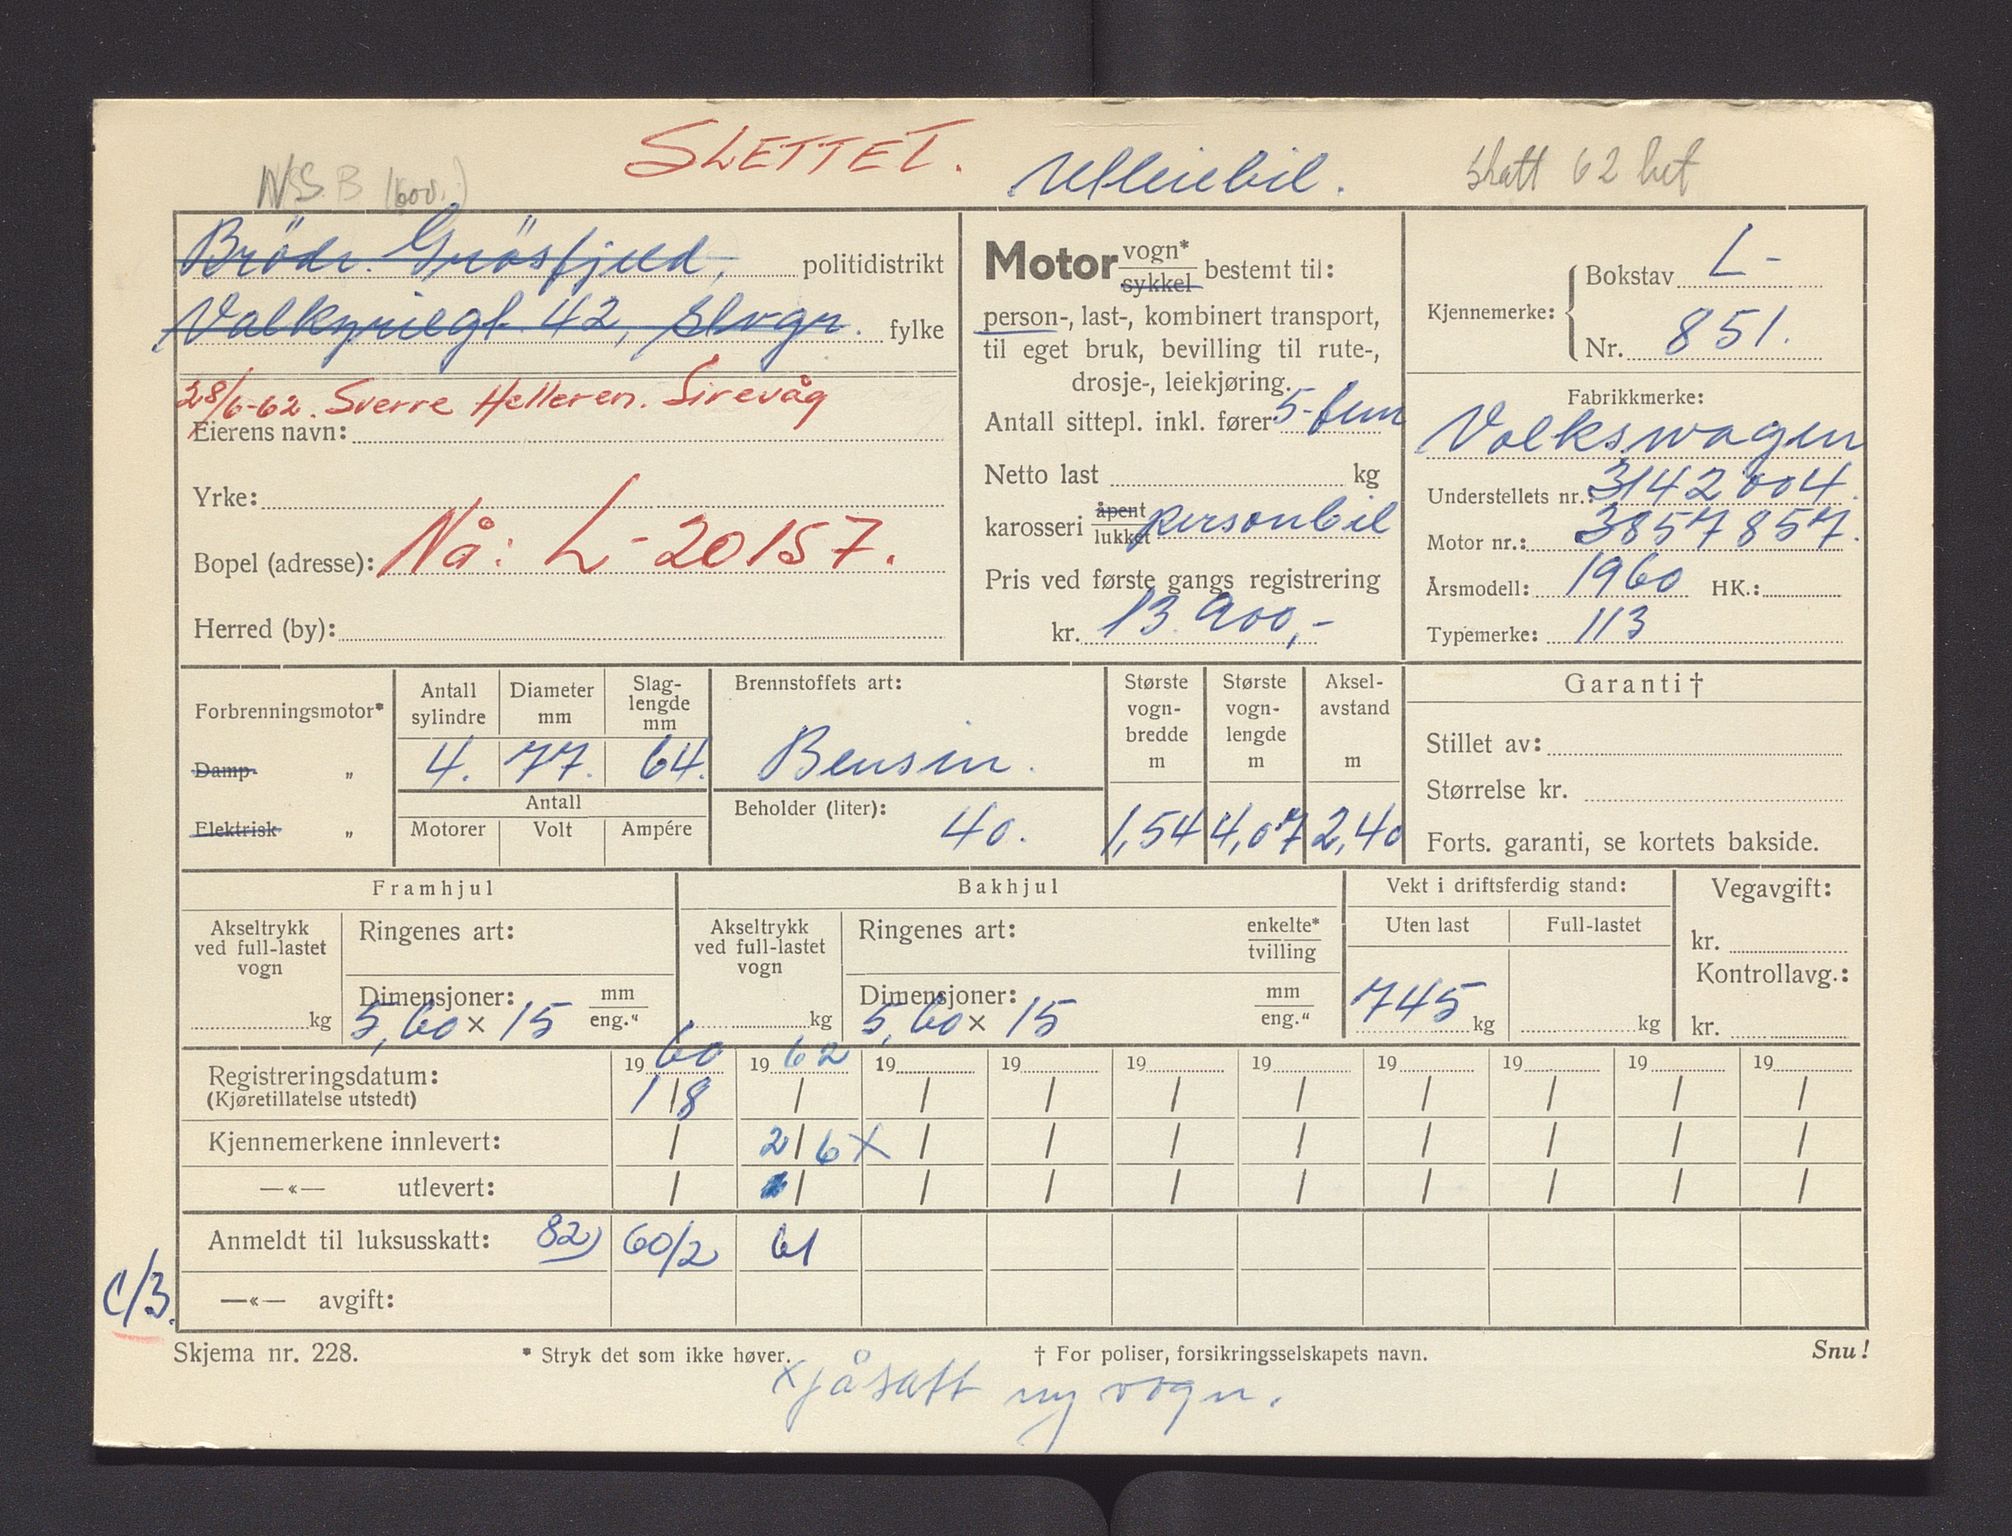 SLETTET.
Utleiebil.
Skatt 62 bet
N.S.B (600.)
Brödr. Grösfjeld, politidistrikt
Valkyriegt 42, Stvgr. fylke
28/6-62. Sverre Helleren. Sirevåg
Eierens navn:
Yrke:
Nå: L-20157.
Bopel (adresse):
Herred (by):
Motor vogn* sykkel bestemt til:
person-, last-, kombinert transport,
til eget bruk, bevilling til rute-,
drosje-, leiekjøring.
Antall sittepl. inkl. fører 5-fem
Netto last kg
karosseri åpent lukket personbil
Pris ved første gangs registrering
kr. 13.900,-
Kjennemerke: Bokstav L-
Nr. 851.
Fabrikkmerke:
Volkswagen
Understellets nr.: 3142004.
Motor nr.: 3857857.
Årsmodell: 1960 HK.:
Typemerke: 113
Forbrenningsmotor*
Damp "
Elektrisk "
Antall sylindre Diameter mm Slag-lengde mm
4. 77. 64.
Antall
Motorer Volt Ampére
Brennstoffets art:
Bensin.
Beholder (liter):
40.
Største vogn-bredde m
1,54
Største vogn-lengde m
4,07
Aksel-avstand m
2,40
Garanti †
Stillet av:
Størrelse kr.
Forts. garanti, se kortets bakside.
Framhjul
Akseltrykk ved full-lastet vogn
kg
Ringenes art:
Dimensjoner: mm eng."
5,60 × 15
Bakhjul
Akseltrykk ved full-lastet vogn
kg
Ringenes art: enkelte* tvilling
Dimensjoner: mm eng."
5,60 × 15
Vekt i driftsferdig stand:
Uten last Full-lastet
745 kg kg
Vegavgift:
kr.
Kontrollavg.:
kr.
19 60 19 62 19 19 19 19 19 19 19 19
Registreringsdatum: 1/8 / / / / / / / / /
(Kjøretillatelse utstedt)
Kjennemerkene innlevert: / 2/6 x / / / / / / / /
—«— utlevert: / / / / / / / / / /
Anmeldt til luksusskatt: 82) 60/2 61
C/3.
—«— avgift:
Skjema nr. 228. * Stryk det som ikke høver. † For poliser, forsikringsselskapets navn. Snu!
x påsatt ny vogn.